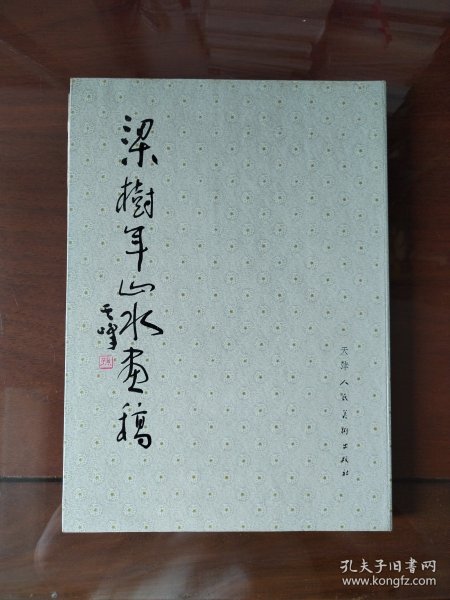 梁樹年山水画稿
天津人民美術出版社
孔夫子旧书网
www.kongfz.com